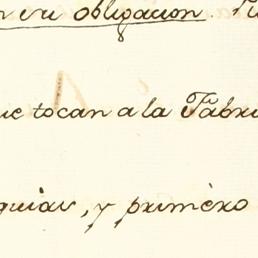 n su obligacion. Pu
ue tocan a la Fabri
quias, y primèro